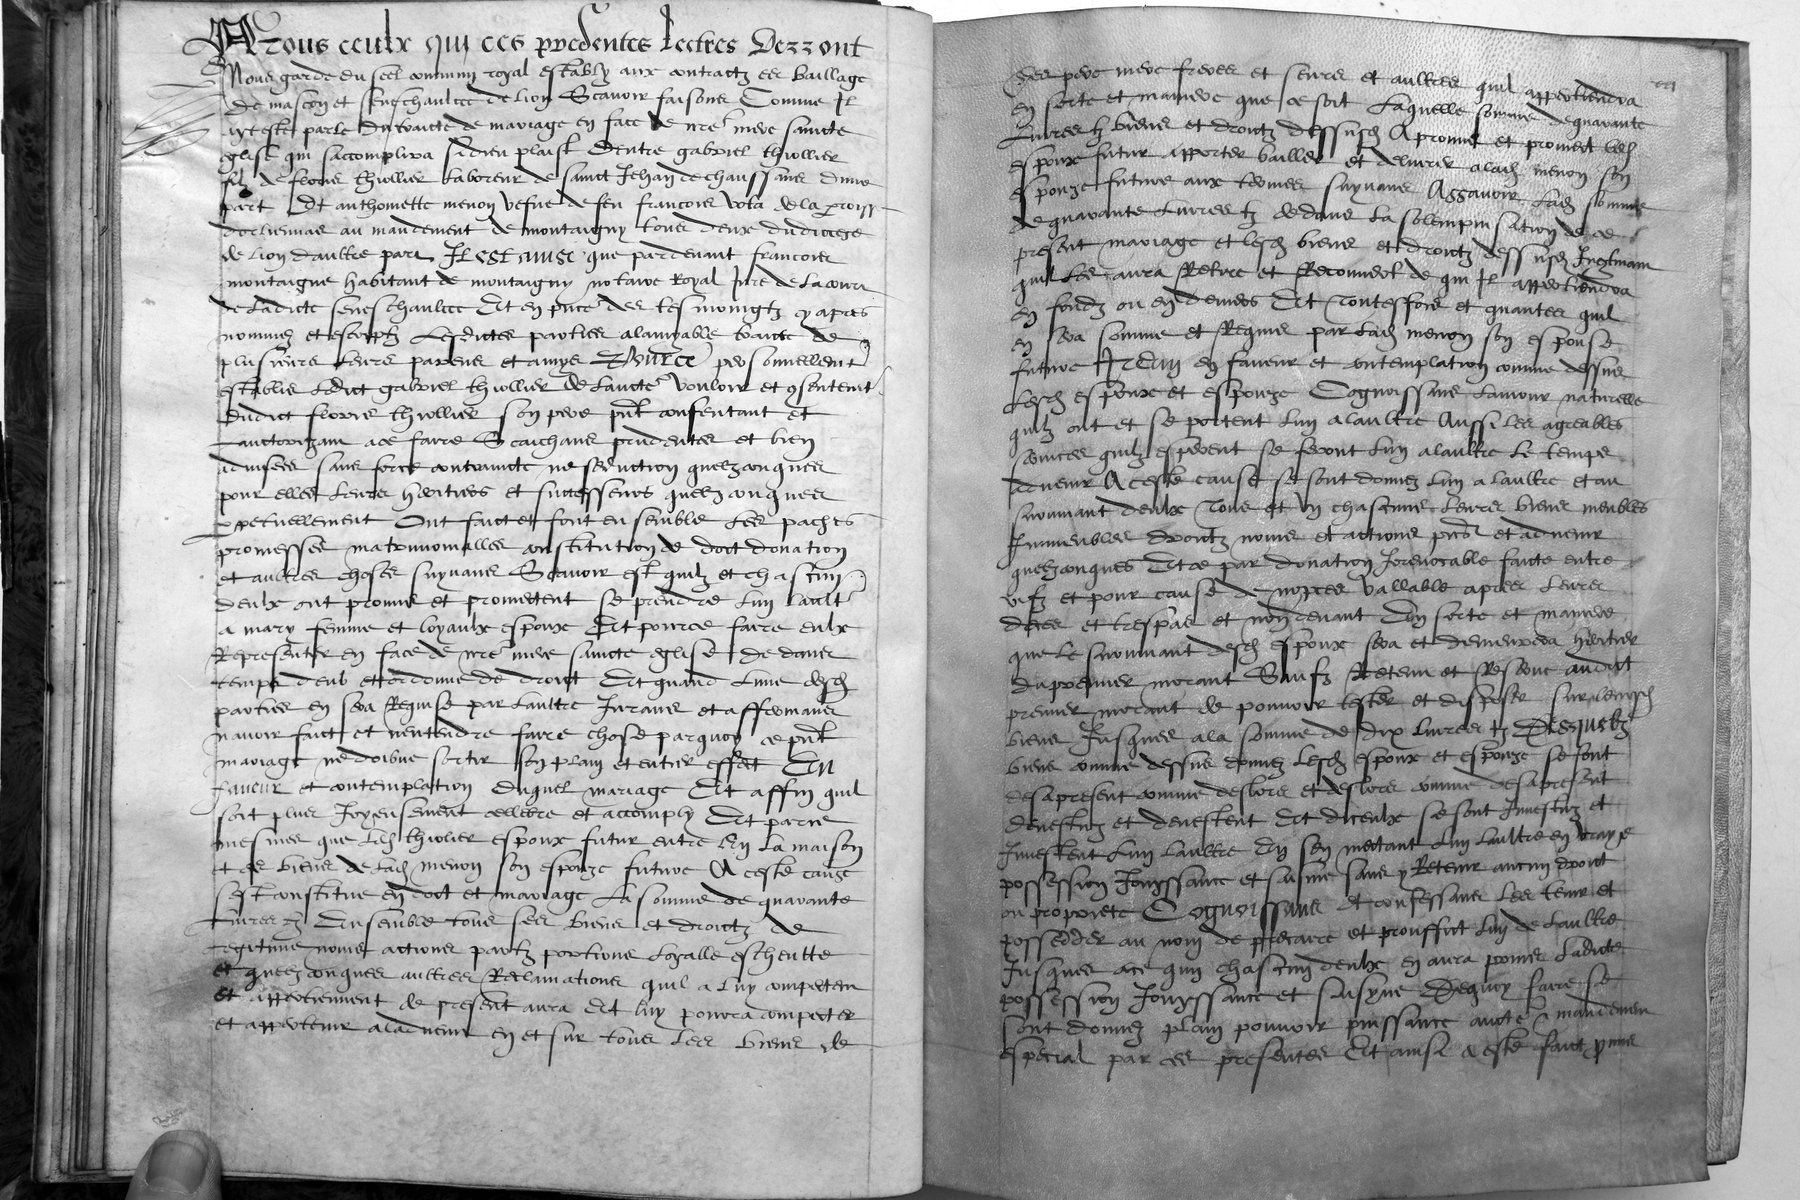 A tous ceulx qui ces presentes lectres verront
Nous garde du seel commun royal estably aux contractz es bailliage
de mascon et seneschaulcee de lion Scavoir faisons Comme Il
ayt este parle du traicte de mariage en face de nre mere saincte
eglise qui saccomplira si dieu plaist Dentre gabriel thiollier
filz de fleurie thiollier laboreur de sainct Jehan de chaussans dune
part Et anthoinette menon vefve de feu francois vola de la paroiss
dorlienas au mandement de montaigny tous deux du diocese
de lion daultre part Il est ainsi que pardevant francois
montaigne habitant de montaigny notaire Royal Jure de la court
de ladicte seneschaulcee Et en pnce des tesmoingtz cy apres
nommez et escriptz Lesdictes parties alamyable traicte de
plusieurs leurs parens et amys Pource personnellement
establis Ledict gabriel thiollier de laucte vouloir et consentement
dudict fleurie thiollier son pere pnt consentant et
lauctorizant a ce faire Scaichans prudentes et bien
advisees sans force contraincte ne seduction quelzconques
pour elles leurs heritiers et successeurs quelzconques
perpetuellement Ont faict et font ensemble les paches
promesses matrimonialles constitution de doct donation
et aultres choses suyvans Scavoir est quilz et chascun
deulx ont promis et promectent se prendre lun laultre
a mary femme et loyaulx espoux Et pource faire eulx
Representer en face de nre mere saincte eglise dedans
temps deub et ordonne de droict Et quand lune desd
parties en sera Requise par laultre Jurans et affermans
navoir faict et nentendre faire chose parquoy ce pnt
mariage ne doibve sortir son plain et entier effect En
faveur et contemplation duquel mariage Et affin quil
soit plus Joyeusement cellebre et accomply Et parce
mesmes que led thiolier espoux futur entre En la maison
et es biens de lad menon son espouze future A ceste cause
sest constitue en doct et mariage La somme de quarante
livres tz Ensemble tous ses biens et droictz de
legitime noms actions partz portions layalle escheutte
et quelzconques aultres Reclamations quil a luy competent
et appertiennent de present aura Et luy pourra competer
et appertenir aladvenir en et sur tous les biens de
ses pere mere freres et seurs et aultres quil appertiendra
en sorte et maniere que ce soit Laquelle somme de quarante
Livres tz biens et droictz dessusd A promis et promect led
espoux futur apporter bailler et delivrer alad menon son
espouze future aux termes suyvans Assavoir Lad somme
de quarante livres tz dedans la solempnisation de ce
present mariage et lesd biens et droictz dessusd
quil les aura Retire et Recouvert de qui Il appertiendra
en fondz ou en deniers Et toutesfois et quantes quil
en sera somme et Requis par lad menon son espouse
future Item en faveur et contemplation comme dessus
Lesd espoux et espouze Cognoissans lamour naturelle
quilz ont et se portent lun alaultre Aussi les agreables
services quilz esperent se feront lun alaultre le temps
advenir A ceste cause se sont donnez lun a laultre et au
survivant deulx Tous et Un chascuns leurs biens meubles
Immeubles droictz noms et actions pns et advenir
quelzconques Et ce par donation Irrevocable faicte entre
vifz et pour cause de nopces vallable apres leurs
deces et trespas et non devant En sorte et maniere
que le survivant desd espoux sera et demeurera heritier
du premier morant Saufz Retenu et Reserve audict
premier morant de pouvoir tester et disposer sur lesusd
biens Jusques ala somme de dix livres tz Desquelz
biens comme dessus donnez Lesd espoux et espouze se sont
desapresent comme deslors et deslors comme desapresent
devestuz et devestent Et diceulx se sont Investuz et
Investent lun laultre En sen mectant lun laultre en vraye
possession Jouyssance et saisine sans y Retenir aucun droict
ou propriete Cognoissans Et confessans les tenir et
posseder au nom de precaire et prouffict lun de laultre
Jusques ace quun chascun deulx en aura prinse ladicte
possession Jouyssance et saisyne Dequoy faire se
sont donnez plain pouvoir puissance aucte mandement
especial par ces presentes Et ainsi a este faict promis